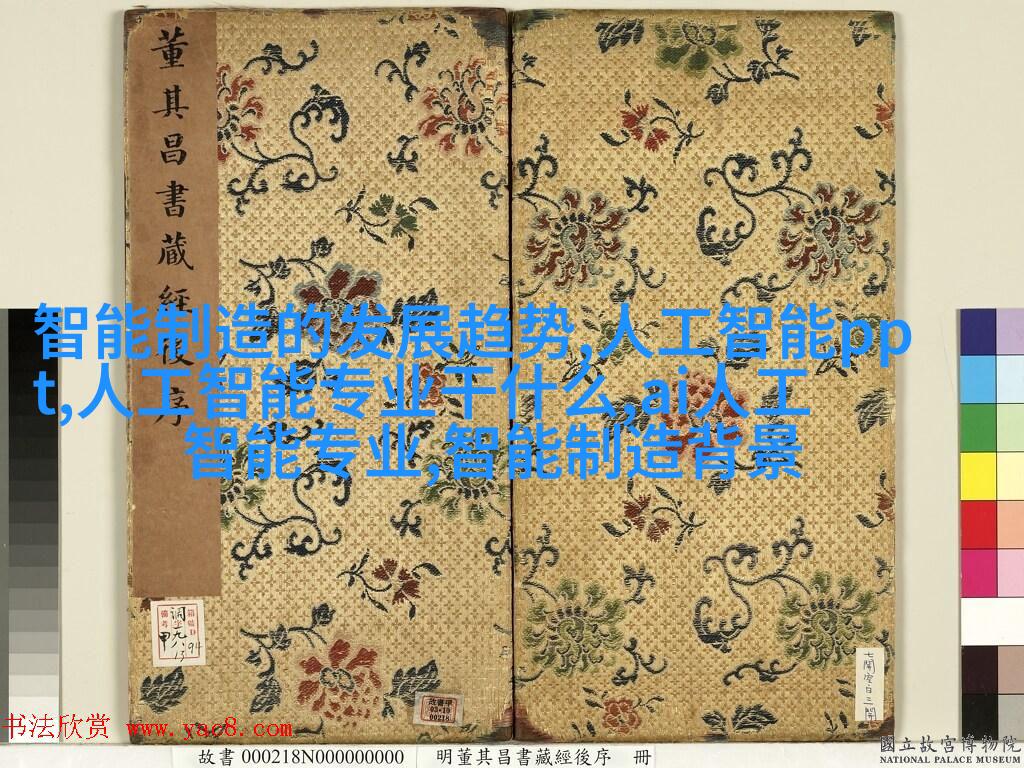 董其昌書藏經後序
智能制造的发展趋势,人工智能pp
t,人工智能专业干什么,ai人工
智能专业,智能制造背景
故書甲
03•10
00218
七開空白三開
书法欣赏 www.yac8.com
故書 000218N000000000 明董其昌書藏經後序 冊
國立故宮博物院
NATIONAL PALACE MUSEUM